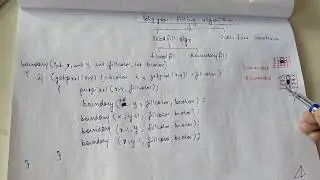 Polygon filling algorithm
Seed fill algo
Scan line
flood fill boundary fill
boundary (int x, int y, int fillcolor, int bcolor)
{ if (getpixel (x,y) != bcolor & & getpixel (x,y) != fillcolor)
{ putpixel (x,y, fillcolor)
boundary ( y, fillcolor, bcolor);
boundary (x, y+1, fillcolor, bcolor);
boundary (x-1, y, fillcolor, bcolor);
boundary (x, y-1, fillcolor, bcolor);
}
}